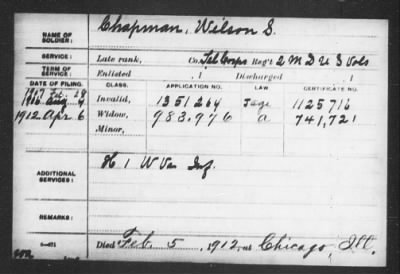 NAME OF SOLDIER: Chapman, Wilson S.
SERVICE: Late rank, Co. Fd Corps Reg't 2 M D U S Vols
TERM OF SERVICE: Enlisted , 1 Discharged , 1
DATE OF FILING. CLASS. APPLICATION NO. LAW CERTIFICATE NO.
1907 Feb. 28
1906 Aug 4 Invalid, 1351264 1125716
1912 Apr 6 Widow, 983,976 a 741,721
Minor,
ADDITIONAL SERVICES: H 1 W Va Inf.
REMARKS:
Died Feb. 5, 1912, at Chicago, Ill.